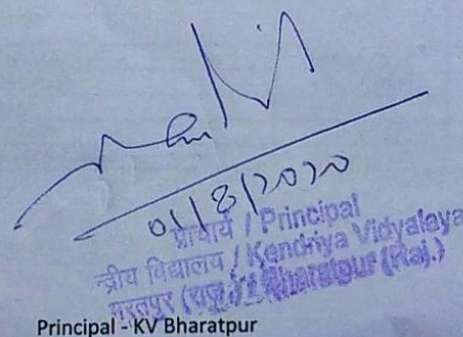 01/8/2020
प्राचार्य / Principal
न्द्रीय विद्यालय / Kendriya Vidyalaya
भरतपुर (राज.) / Bharatpur (Raj.)
Principal - KV Bharatpur